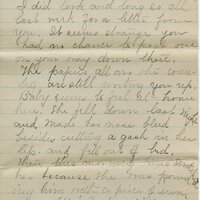 I did look and long so all
last week for a letter from
you. It seems strange you
had no chance to pass one
on your way down there.
The papers all over the coun-
try are still writing you up.
Baby seems to feel at home
here. She fell down last night
and made her nose bleed
besides cutting a gash in her
lip. and fell out of bed,
then this morning
her because she was pound-
ing him with a piece of iron,